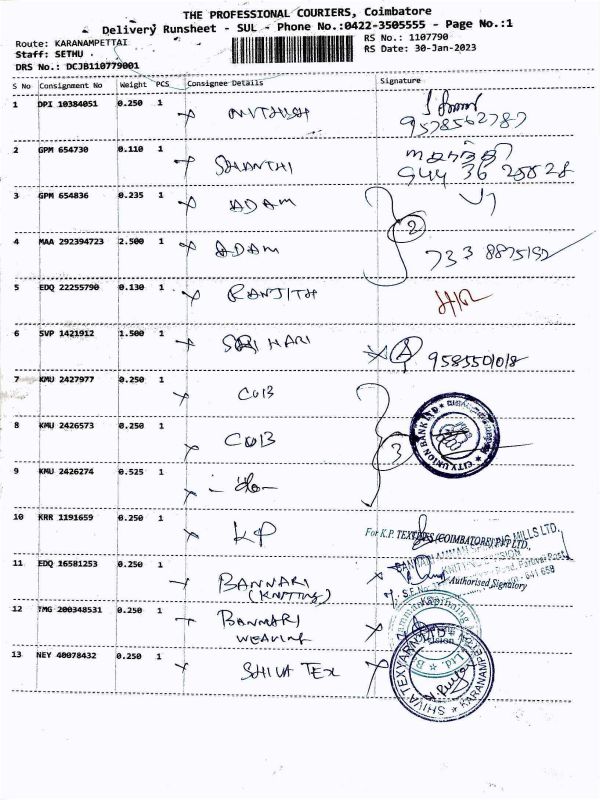 THE PROFESSIONAL COURIERS, Coimbatore
Delivery Runsheet - SUL - Phone No.:0422-3505555 - Page No.:1
Route: KARANAMPETTAI
RS No.: 1107790
Staff: SETHU
RS Date: 30-Jan-2023
DRS No.: DCJB110779001
S No Consignment No Weight PCS Consignee Details Signature
1 DPI 10384051 0.250 1 NITHISH
9578562787
2 GPM 654730 0.110 1 SHANTHI
944 36 25828
3 GPM 654836 0.235 1 ADAM
2
4 MAA 292394723 2.500 1 ADAM
733 8875192
5 EDQ 22255790 0.130 1 RANJITH
6 SVP 1421912 1.500 1 SRI HARI
A 9585501018
7 KMU 2427977 0.250 1 CUB
8 KMU 2426573 0.250 1 CUB
3
CITY UNION BANK LTD
9 KMU 2426274 0.525 1 - do -
10 KRR 1191659 0.250 1 KP
For K.P. TEXTILES (COIMBATORE) PVT LTD.,
11 EDQ 16581253 0.250 1 BANNARI
(KNITTING)
BANNARI AMMAN SPINNING MILLS LTD.,
KNITTING DIVISION
Authorised Signatory
641 658
12 TMG 200348531 0.250 1 BANNARI
WEAVING
13 NEY 40078432 0.250 1 SHIVA TEX
SHIVA TEXYARN LTD
KARANAMPETTAI